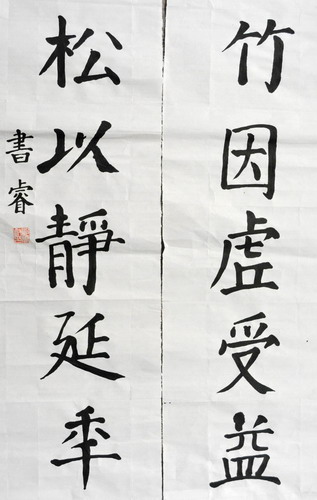 竹因虛受益
松以靜延年
書睿